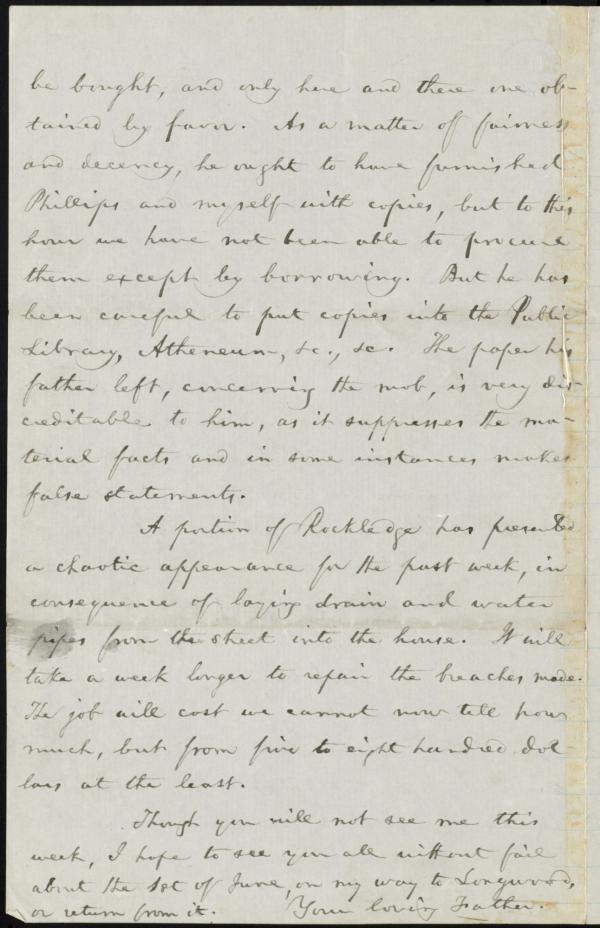 be bought, and only here and there one ob-
tained by favor. As a matter of fairness
and decency, he ought to have furnished
Phillips and myself with copies, but to this
hour we have not been able to procure
them except by borrowing. But he has
been careful to put copies into the Public
Library, Atheneum, &c., &c. The paper his
father left, concerning the mob, is very dis-
creditable to him, as it suppresses the ma-
terial facts and in some instances makes
false statements.
A portion of Rockledge has presented
a chaotic appearance for the past week, in
consequence of laying drain and water
pipes from the street into the house. It will
take a week longer to repair the breaches made.
The job will cost we cannot now tell how
much, but from five to eight hundred dol-
lars at the least.
Though you will not see me this
week, I hope to see you all without fail
about the 1st of June, on my way to Longwood,
or return from it. Your loving Father.